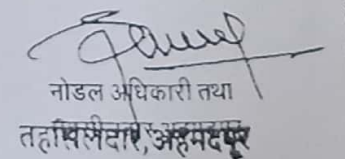 नोडल अधिकारी तथा
तहसिलदार, अहमदपूर